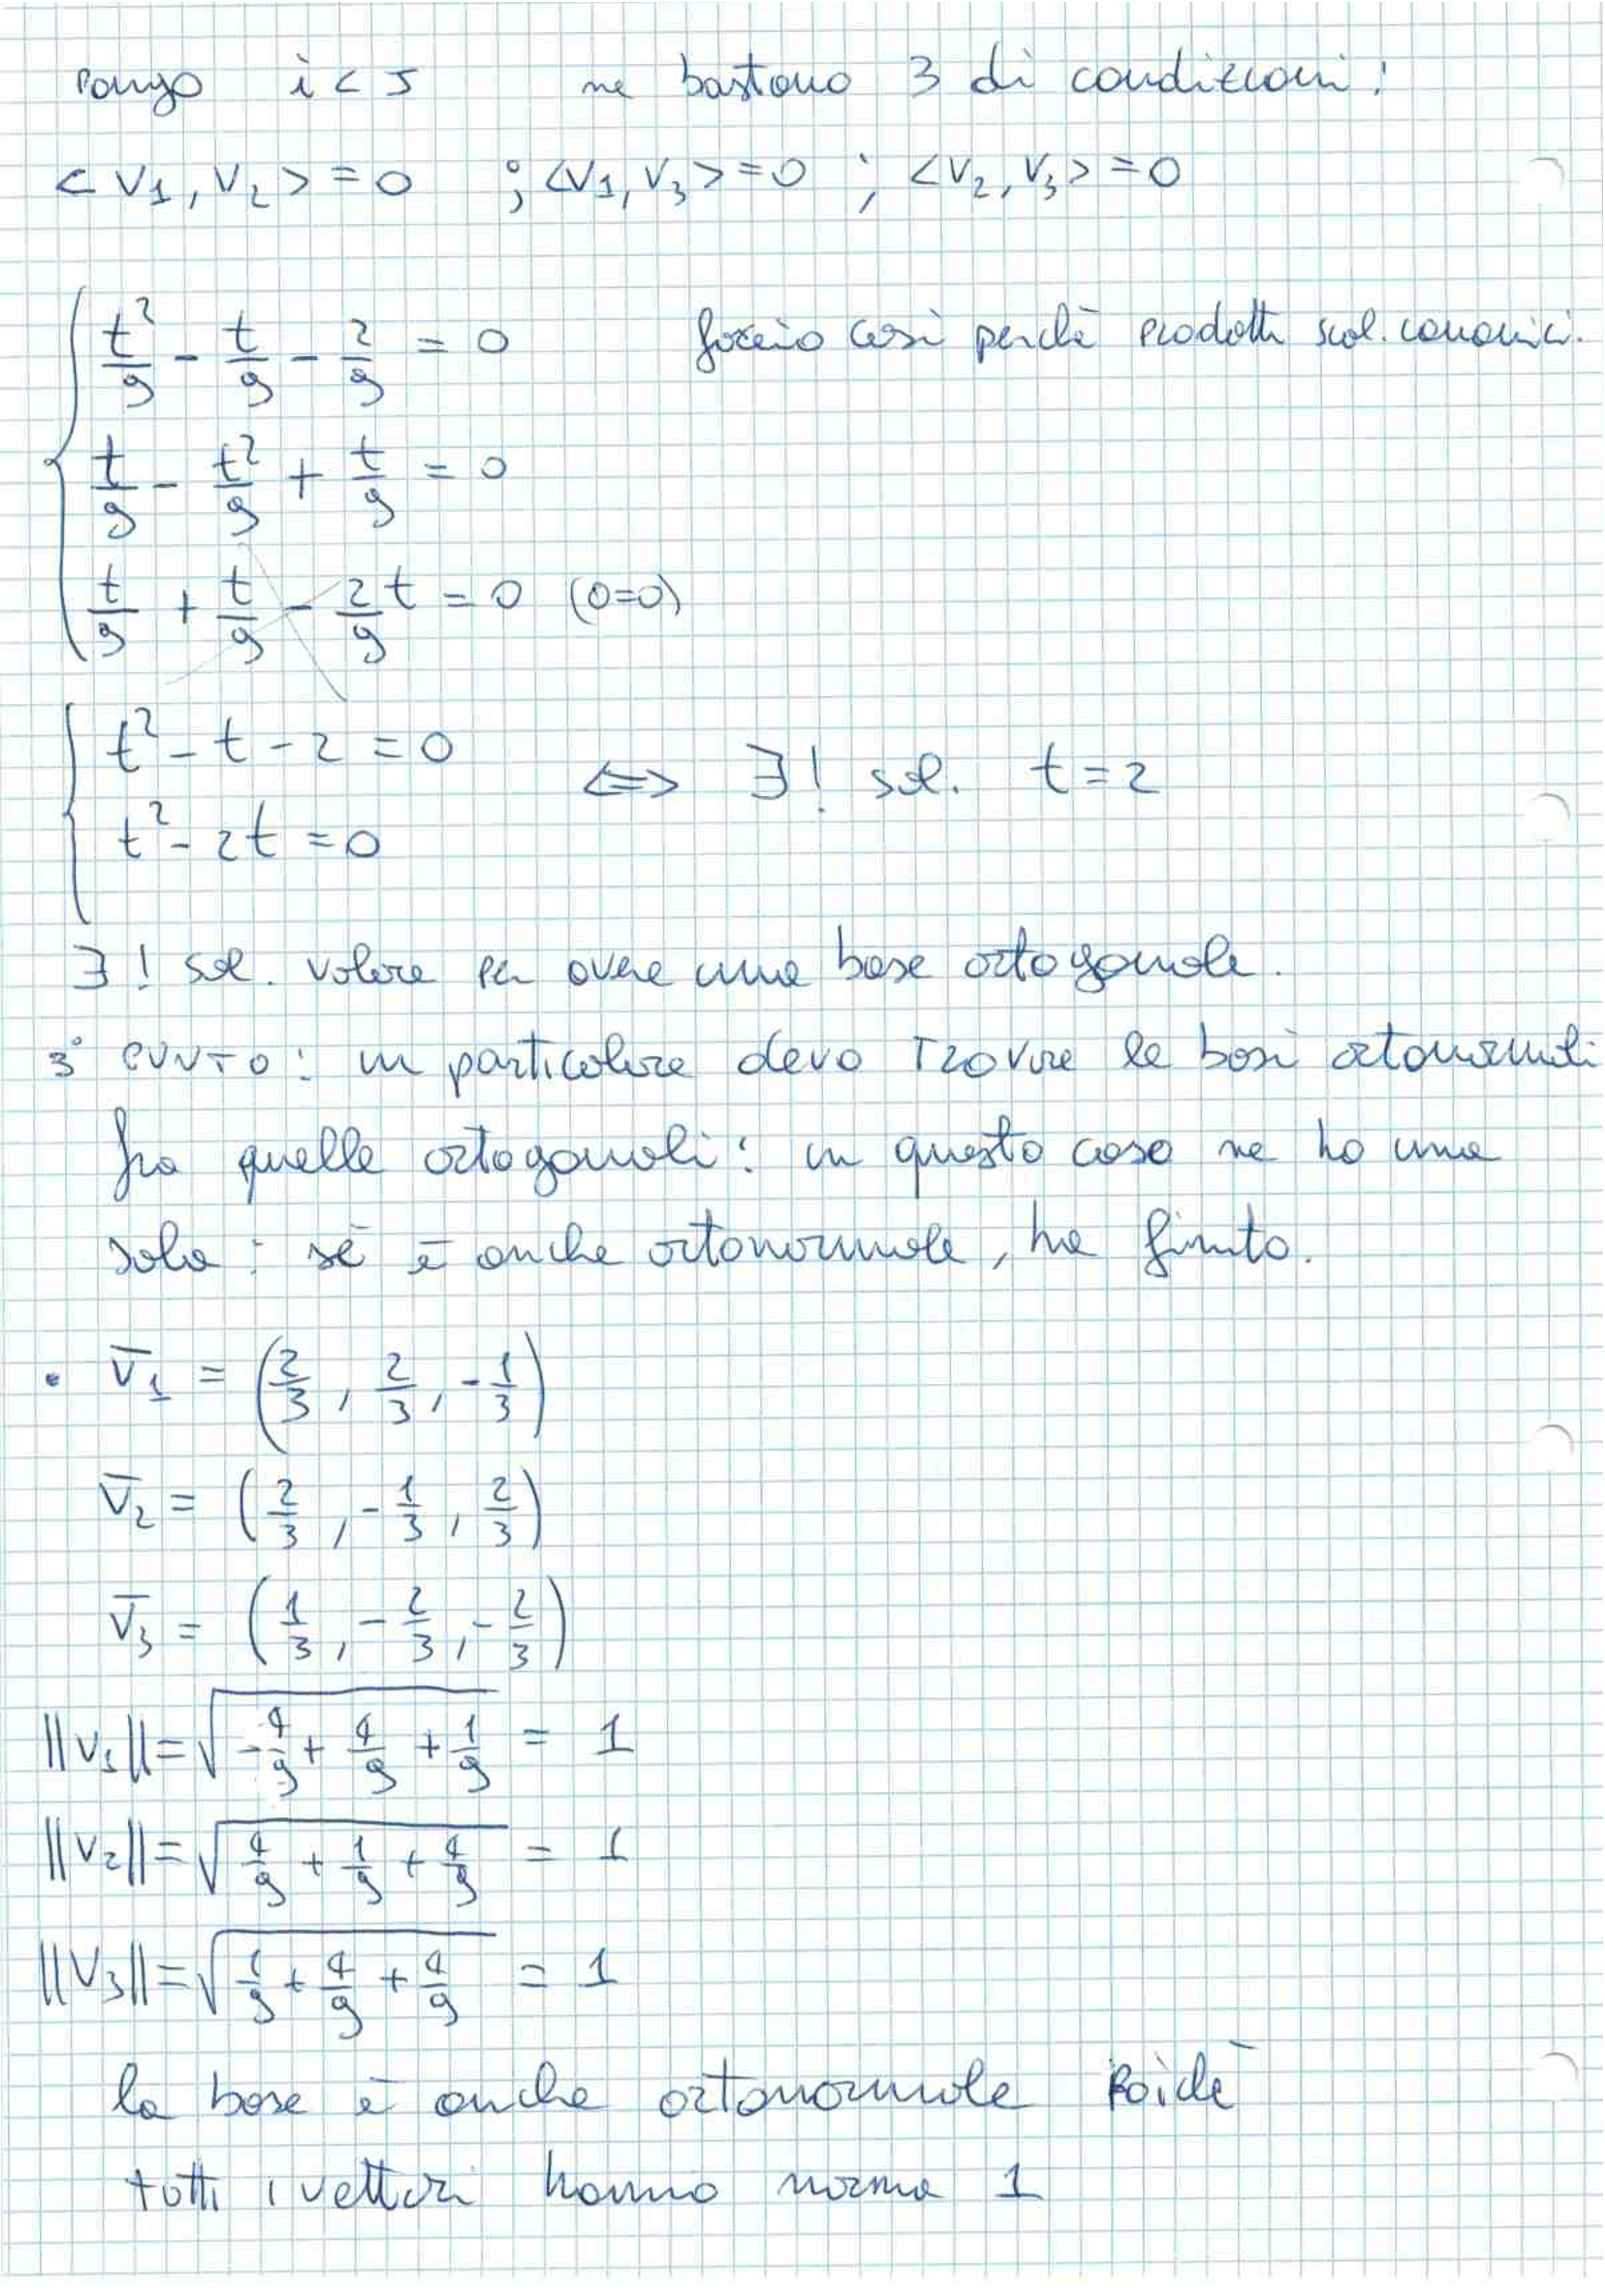 pongo i < J ne bastano 3 di condizioni:
< v₁, v₂ > = 0 ; < v₁, v₃ > = 0 ; < v₂, v₃ > = 0
t²/9 - t/9 - 2/9 = 0 faccio così perchè prodotti scal. canonici.
t/9 - t²/9 + t/9 = 0
t/9 + t/9 - 2/9 t = 0 (0=0)
t² - t - 2 = 0
⇔ ∃! sol. t = 2
t² - 2t = 0
∃! sol. valore per avere una base ortogonale.
3° PUNTO: in particolare devo trovare le basi ortonormali
fra quelle ortogonali: in questo caso ne ho una
sola: sè è anche ortonormale, ho finito.
• v̅₁ = (2/3, 2/3, -1/3)
v̅₂ = (2/3, -1/3, 2/3)
v̅₃ = (1/3, -2/3, -2/3)
||v₁|| = √(-4/9 + 4/9 + 1/9) = 1
||v₂|| = √(4/9 + 1/9 + 4/9) = 1
||v₃|| = √(1/9 + 4/9 + 4/9) = 1
la base è anche ortonormale poichè
tutti i vettori hanno norma 1